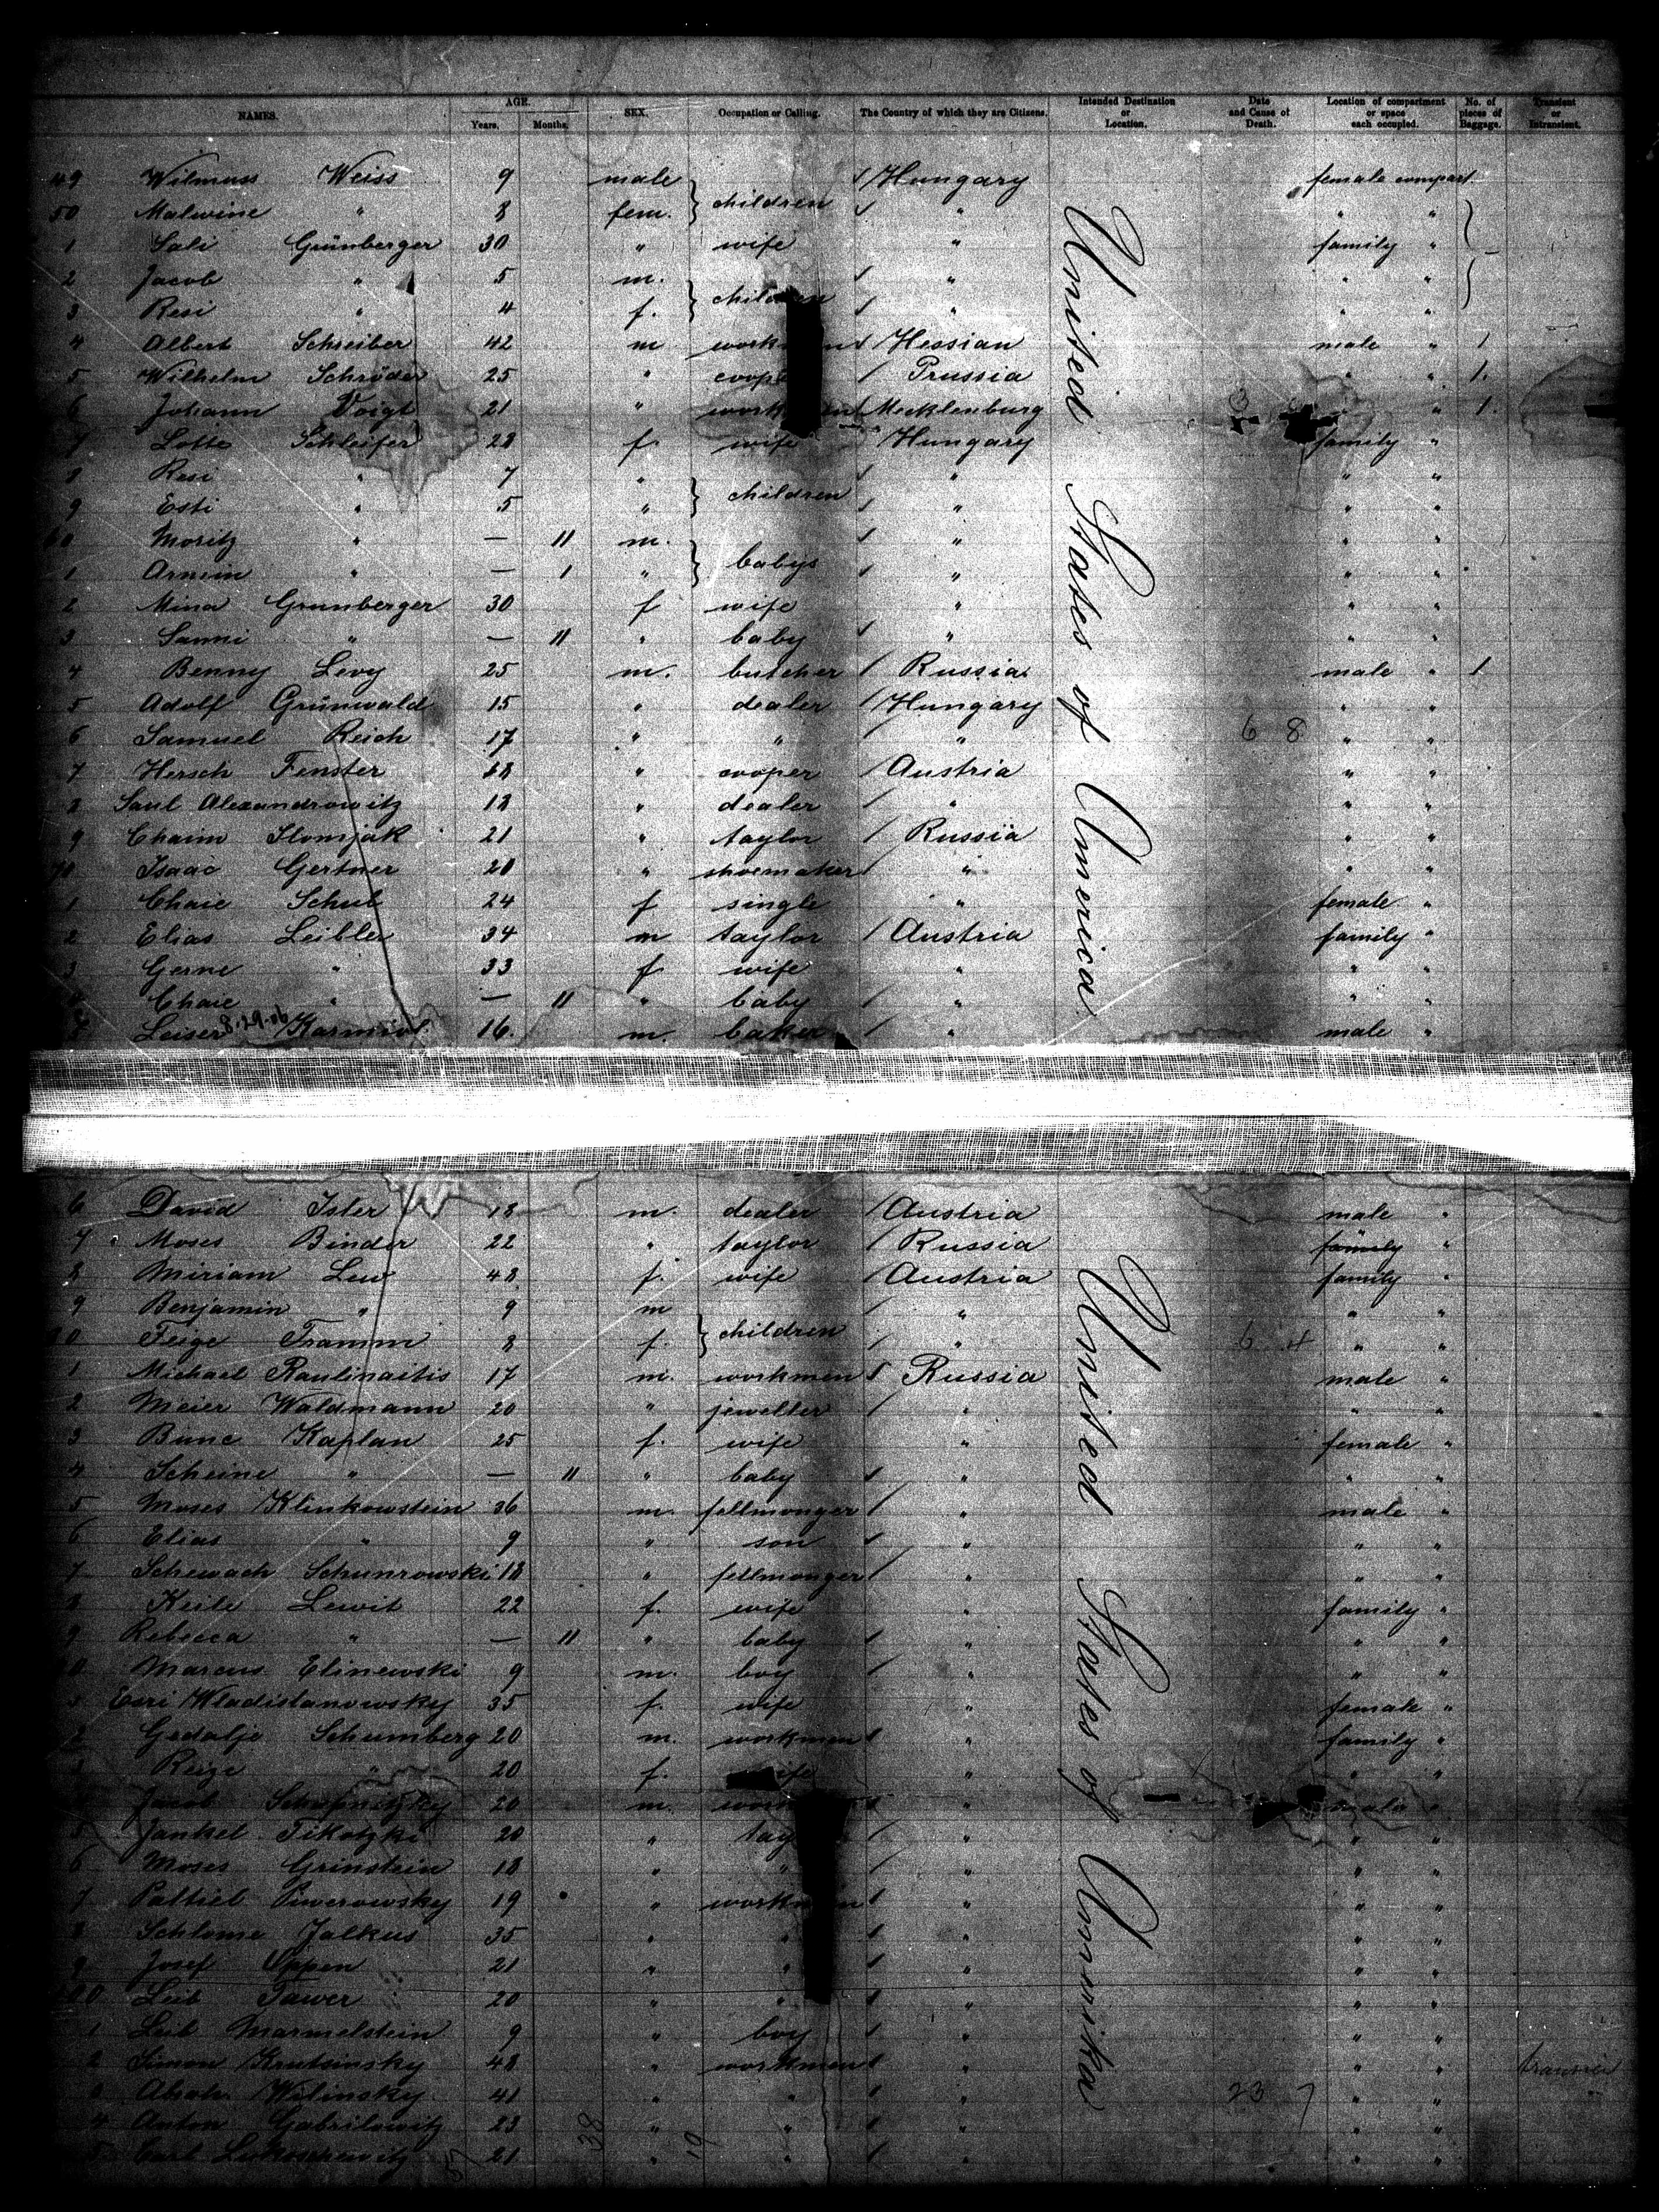 NAMES. AGE. Years. Months. SEX. Occupation or Calling. The Country of which they are Citizens. Intended Destination or Location. Date and Cause of Death. Location of compartment or space each occupied. No. of pieces of Baggage. Transient or Intransient.
49 Wilmuss Weiss 9 male children Hungary female compart.
50 Malwine " 8 fem. " " "
1 Sali Grünberger 30 " wife " family "
2 Jacob " 5 m. children " " "
3 Resi " 4 f. " " "
4 Albert Schreiber 42 m Hessian male " 1
5 Wilhelm Schröder 25 " Prussia " " 1.
6 Johann Voigt 21 " Mecklenburg " 1.
7 Lotte Schleifer 28 f. wife Hungary family "
8 Resi " 7 " children " " "
9 Esti " 5 " " " "
60 Moritz " — 11 m. babys " " "
1 Armin " — 1 " " " "
2 Mina Grunberger 30 f wife " " "
3 Sanni " — 11 " baby " " "
4 Benny Levy 25 m. butcher Russia male " 1.
5 Adolf Grünwald 15 " dealer Hungary " "
6 Samuel Reich 17 " " " 6 8 " "
7 Hersch Fenster 18 " cooper Austria " "
8 Saul Alexandrowitz 18 " dealer " " "
9 Chaim Slomjak 21 " taylor Russia " "
70 Isaac Gertner 20 " shoemaker " " "
1 Chaie Schub 24 f single " female "
2 Elias Leibler 34 m taylor Austria family "
3 Gerne " 33 f wife " " "
4 Chaie " — 11 " baby " " "
Leiser 8-29-06 Karmiol 16. m. baker " male "
United States of America
6 David Ister 18 m. dealer Austria male "
7 Moses Binder 22 " taylor Russia family "
8 Miriam Lew 48 f. wife Austria family "
9 Benjamin " 9 m children " " "
80 Feige Tramm 8 f. " 6 4 " "
1 Michael Raulinaitis 17 m. workmen Russia male "
2 Meier Waldmann 20 " jeweller " " "
3 Bune Kaplan 25 f. wife " female "
4 Scheine " — 11 " baby " " "
5 Moses Klinkowstein 36 m. fellmonger " male "
6 Elias " 9 " son " " "
7 Schewach Schunrowski 18 " fellmonger " " "
8 Keile Lewit 22 f. wife " family "
9 Rebecca " — 11 " baby " " "
90 Marcus Elinewski 9 m. boy " " "
Wladislanowsky 35 f. wife " female "
2 Gedalje Schumberg 20 m. workmen " family "
Reize " 20 f. wife " " "
Jacob 20 m. " male "
5 Jankel Tikotzki 20 " " " "
6 Moses Grinstein 18 " " " " "
7 Paltiel Piwerowsky 19 " workmen " " "
8 Schlome Jalkus 35 " " " " "
9 Josef Oppen 21 " " " " "
100 Leib Tawer 20 " " " " "
1 Leib Marmelstein 9 " boy " " "
2 Simon Krutsinsky 48 " workmen " " "
3 Wilinsky 41 " " " 23 7 " "
4 Anton Gabrilowitz 23 " " " " "
5 Carl 21 " " " " "
United States of Amerika
38